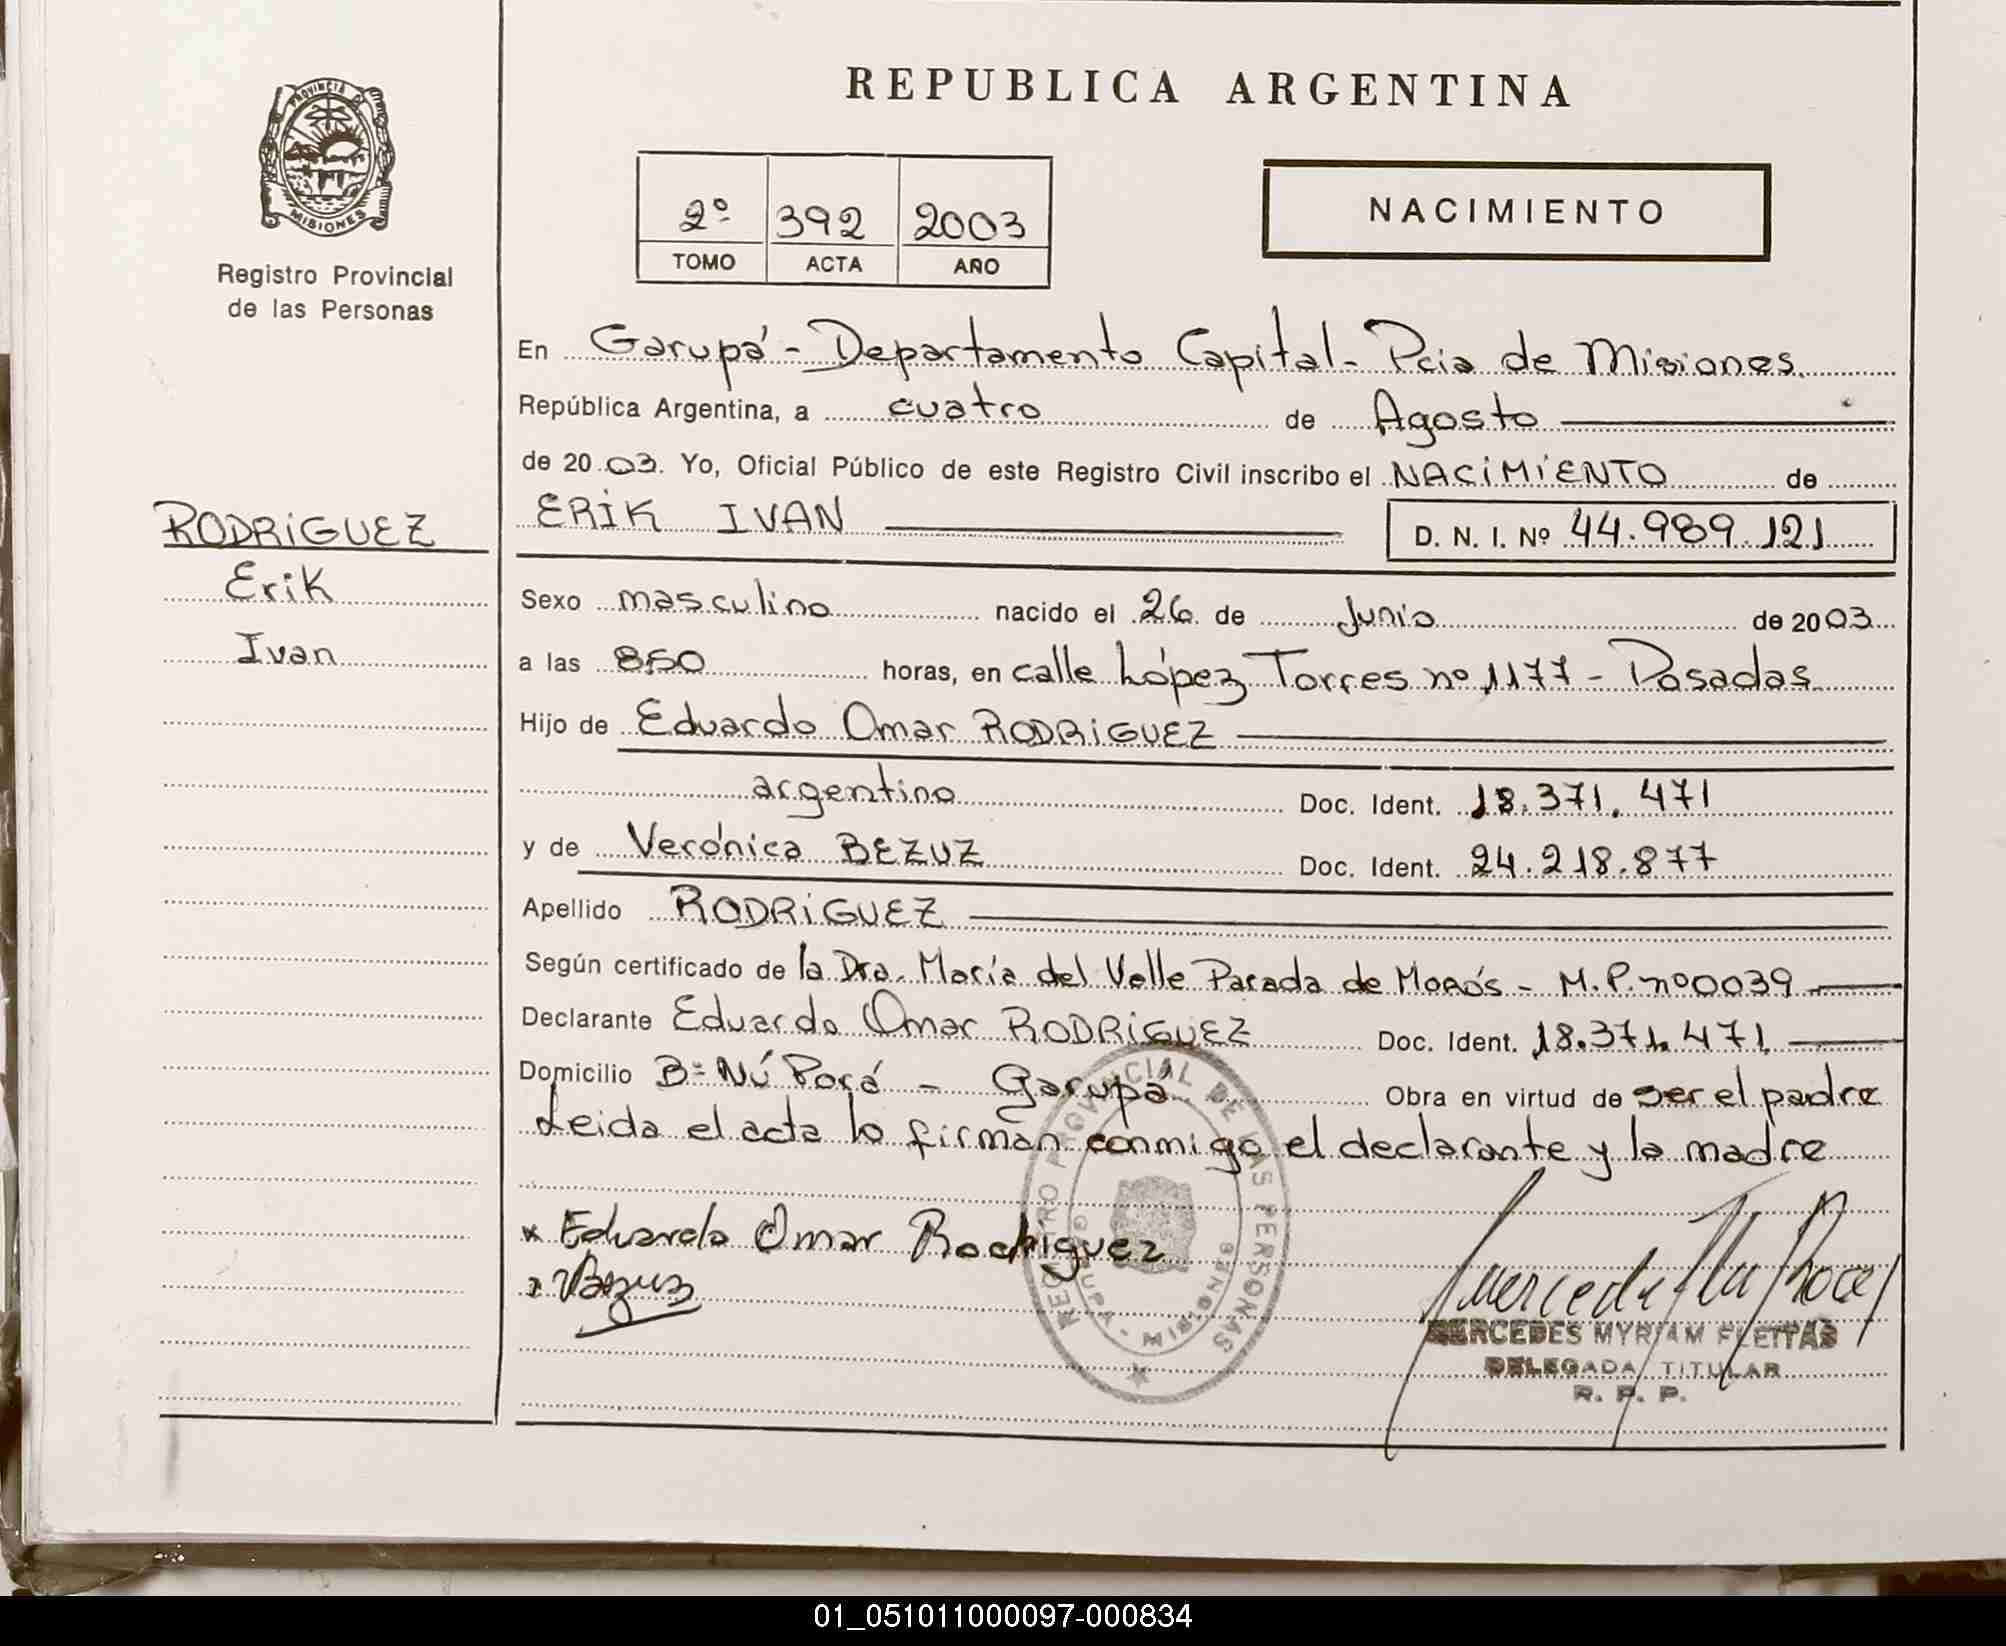 REPUBLICA ARGENTINA
PROVINCIA DE
MISIONES
Registro Provincial
de las Personas
2º 392 2003
TOMO ACTA AÑO
NACIMIENTO
En Garupá - Departamento Capital - Pcia de Misiones
República Argentina, a cuatro de Agosto
de 2003. Yo, Oficial Público de este Registro Civil inscribo el NACIMIENTO de
ERIK IVAN D. N. I. Nº 44.989.121
RODRIGUEZ
Erik
Ivan
Sexo masculino nacido el 26 de Junio de 2003
a las 8,50 horas, en calle López Torres nº 1177 - Posadas
Hijo de Eduardo Omar RODRIGUEZ
argentino Doc. Ident. 18.371.471
y de Verónica BEZUZ Doc. Ident. 24.218.877
Apellido RODRIGUEZ
Según certificado de la Dra. María del Valle Parada de - M.P. nº 0039
Declarante Eduardo Omar RODRIGUEZ Doc. Ident. 18.371.471
Domicilio Bº Ñú Porá - Garupá Obra en virtud de ser el padre
Leida el acta lo firman conmigo el declarante y la madre
x Eduardo Omar Rodriguez
REGISTRO PROVINCIAL DE LAS PERSONAS
GARUPA - MISIONES
MERCEDES MYRIAM FLEITAS
DELEGADA TITULAR
R. P. P.
01_051011000097-000834